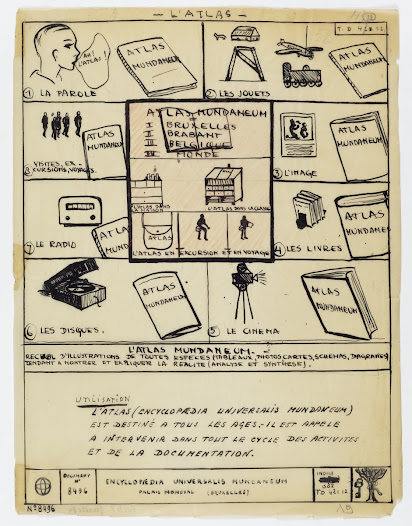 — L'ATLAS —
T.D 421.12
AH! L'ATLAS!
ATLAS MUNDANEUM
1 LA PAROLE
2 LES JOUETS
ATLAS MUNDANEUM
ATLAS MUNDANEUM
I BRUXELLES
II BRABANT
III BELGIQUE
IV MONDE
ATLAS MUNDANEUM
8 VISITES, EX-
CURSIONS, VOYAGES.
ATLAS MUNDANEUM
3 L'IMAGE
L'ATLAS DANS LA MAISON
L'ATLAS DANS LA CLASSE
ATLAS
L'ATLAS EN EXCURSION ET EN VOYAGE
7 LE RADIO
ATLAS MUNDANEUM
4 LES LIVRES
ATLAS MUNDANEUM
6 LES DISQUES.
ATLAS MUNDANEUM
5 LE CINEMA
ATLAS MUNDANEUM
L'ATLAS MUNDANEUM.
RECUEIL D'ILLUSTRATIONS DE TOUTES ESPÈCES (TABLEAUX, PHOTOS, CARTES, SCHEMAS, DIAGRAMES)
TENDANT A MONTRER ET EXPLIQUER LA REALITE (ANALYSE ET SYNTHESE).
UTILISATION
L'ATLAS (ENCYCLOPÆDIA UNIVERSALIS MUNDANEUM)
EST DESTINÉ A TOUS LES AGES.- IL EST APPELÉ
A INTERVENIR DANS TOUT LE CYCLE DES ACTIVITES
ET DE LA DOCUMENTATION.
DOCUMENT
N°
8496
ENCYCLOPÆDIA UNIVERSALIS MUNDANEUM
PALAIS MONDIAL (BRUXELLES)
INDICE
TD 421 12
N° 8496
19